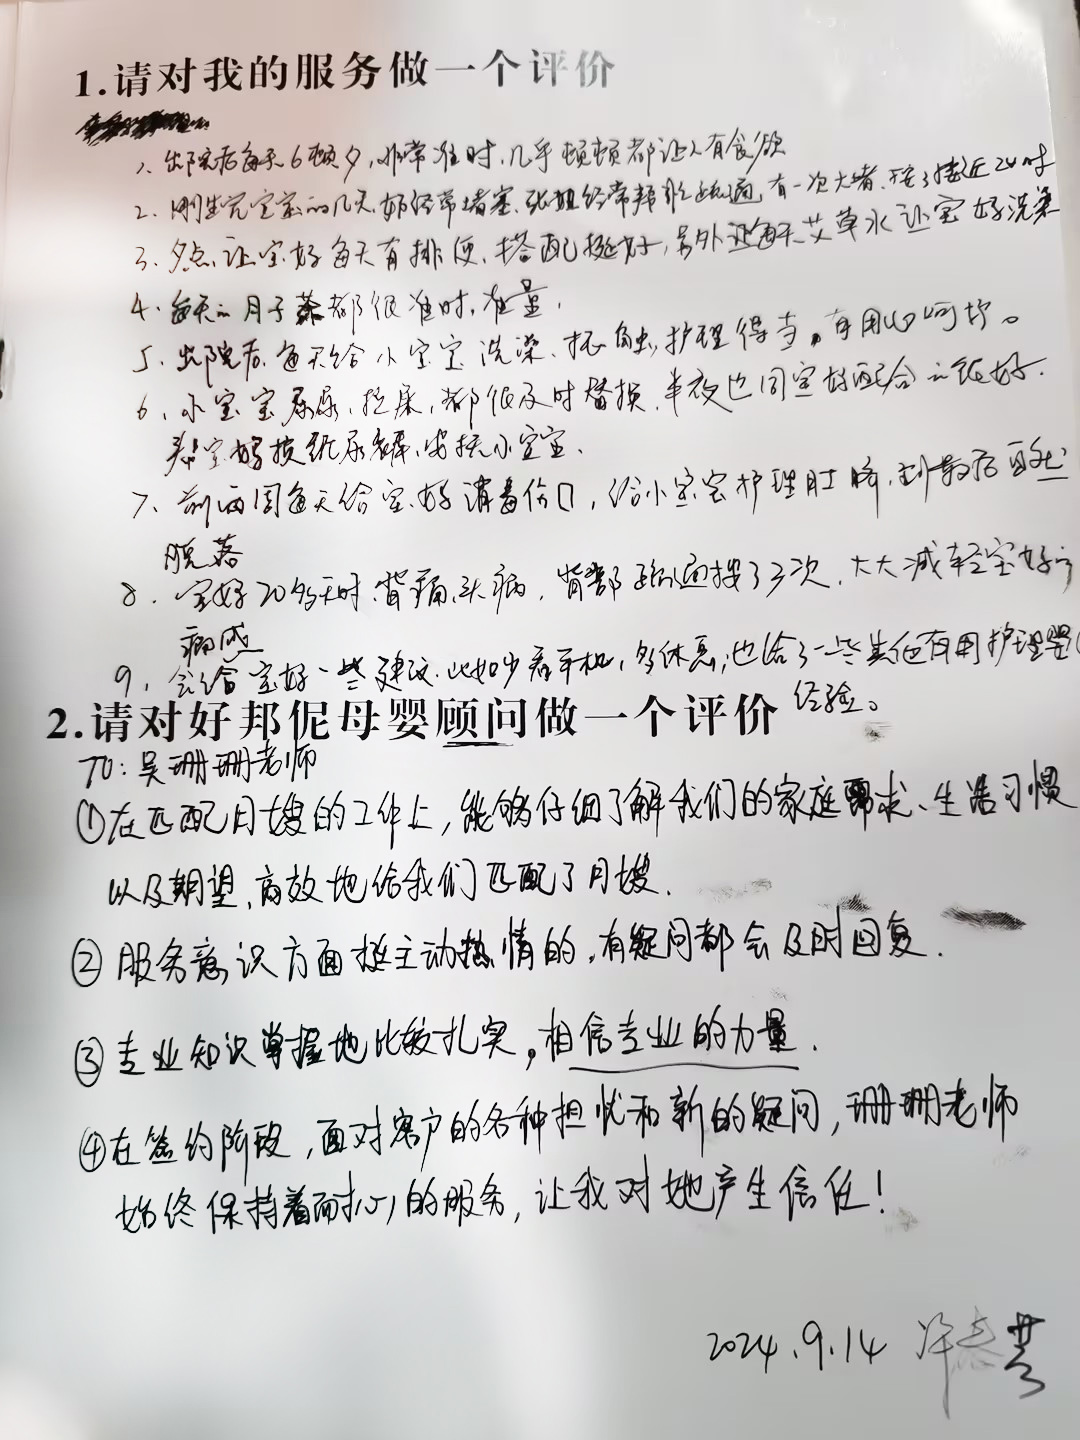 1.请对我的服务做一个评价
1、出院后每天6顿夕,非常准时,几乎顿顿都让人有食欲
2、刚生完宝宝的几天,奶经常堵塞、张姐经常帮忙疏通,有一次大堵、按了接近2小时
3、夕点让宝妈每天有排便、搭配挺好,另外让每天艾草水让宝妈洗澡
4、每天的月子茶都很准时,准量,
5、出院后,每天给小宝宝洗澡、抚触,护理得当。有用心呵护。
6、小宝宝尿尿,拉屎,都很及时替换,半夜也同宝妈配合的很好,
帮宝妈换纸尿裤、安抚小宝宝、
7、前两周每天给宝妈消毒伤口,给小宝宝护理肚脐,到最后自然
脱落
8、宝妈20多天时,背痛,头痛,背部疏通按了3次,大大减轻宝妈的
痛感
9、会给宝妈一些建议,比如少看手机,多休息,也给了一些其他有用护理婴儿
经验。
2.请对好邦伲母婴顾问做一个评价
TO:吴珊珊老师
①在匹配月嫂的工作上,能够仔细了解我们的家庭需求、生活习惯
以及期望,高效地给我们匹配了月嫂.
②服务意识方面挺主动热情的,有疑问都会及时回复.
③专业知识掌握地比较扎实,相信专业的力量.
④在签约阶段,面对客户的各种担忧和新的疑问,珊珊老师
始终保持着耐心的服务,让我对她产生信任!
2024.9.14